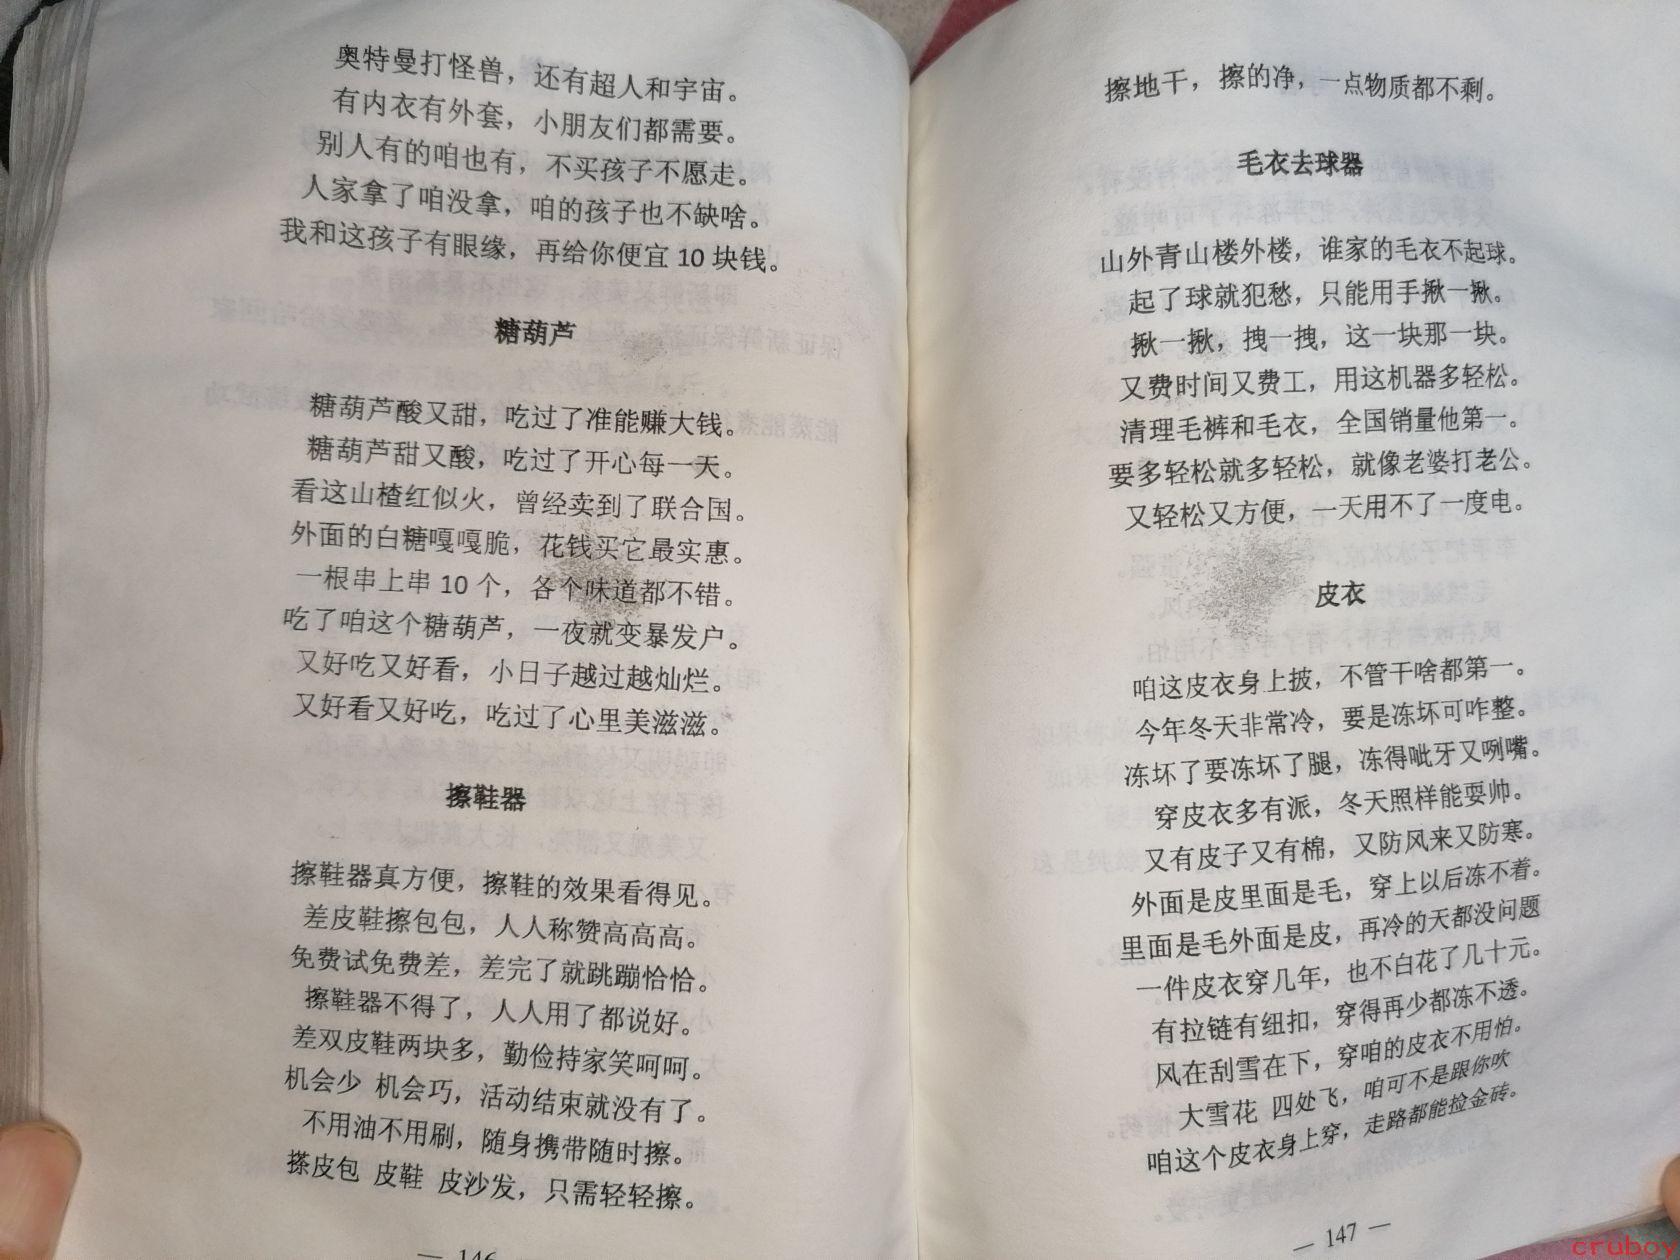 奥特曼打怪兽，还有超人和宇宙。
有内衣有外套，小朋友们都需要。
别人有的咱也有，不买孩子不愿走。
人家拿了咱没拿，咱的孩子也不缺啥。
我和这孩子有眼缘，再给你便宜 10 块钱。
糖葫芦
糖葫芦酸又甜，吃过了准能赚大钱。
糖葫芦甜又酸，吃过了开心每一天。
看这山楂红似火，曾经卖到了联合国。
外面的白糖嘎嘎脆，花钱买它最实惠。
一根串上串 10 个，各个味道都不错。
吃了咱这个糖葫芦，一夜就变暴发户。
又好吃又好看，小日子越过越灿烂。
又好看又好吃，吃过了心里美滋滋。
擦鞋器
擦鞋器真方便，擦鞋的效果看得见。
差皮鞋擦包包，人人称赞高高高。
免费试免费差，差完了就跳蹦恰恰。
擦鞋器不得了，人人用了都说好。
差双皮鞋两块多，勤俭持家笑呵呵。
机会少 机会巧，活动结束就没有了。
不用油不用刷，随身携带随时擦。
搽皮包 皮鞋 皮沙发，只需轻轻擦。
— 146 —
擦地干，擦的净，一点物质都不剩。
毛衣去球器
山外青山楼外楼，谁家的毛衣不起球。
起了球就犯愁，只能用手揪一揪。
揪一揪，拽一拽，这一块那一块。
又费时间又费工，用这机器多轻松。
清理毛裤和毛衣，全国销量他第一。
要多轻松就多轻松，就像老婆打老公。
又轻松又方便，一天用不了一度电。
皮衣
咱这皮衣身上披，不管干啥都第一。
今年冬天非常冷，要是冻坏可咋整。
冻坏了要冻坏了腿，冻得呲牙又咧嘴。
穿皮衣多有派，冬天照样能耍帅。
又有皮子又有棉，又防风来又防寒。
外面是皮里面是毛，穿上以后冻不着。
里面是毛外面是皮，再冷的天都没问题
一件皮衣穿几年，也不白花了几十元。
有拉链有纽扣，穿得再少都冻不透。
风在刮雪在下，穿咱的皮衣不用怕。
大雪花 四处飞，咱可不是跟你吹
咱这个皮衣身上穿，走路都能捡金砖。
— 147 —
cruboy